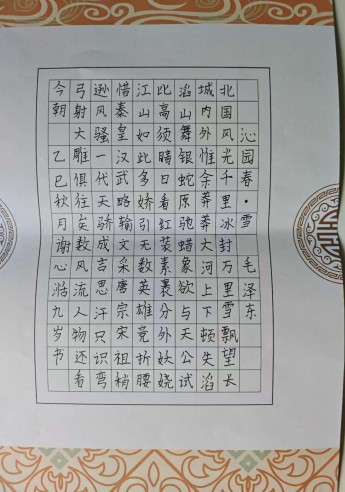 沁园春·雪 毛泽东
北国风光千里冰封万里雪飘望长
城内外惟余莽莽大河上下顿失滔
滔山舞银蛇原驰蜡象欲与天公试
比高须晴日看红装素裹分外妖娆
江山如此多娇引无数英雄竞折腰
惜秦皇汉武略输文采唐宗宋祖稍
逊风骚一代天骄成吉思汗只识弯
弓射大雕俱往矣数风流人物还看
今朝 乙巳秋月谢心湉九岁书